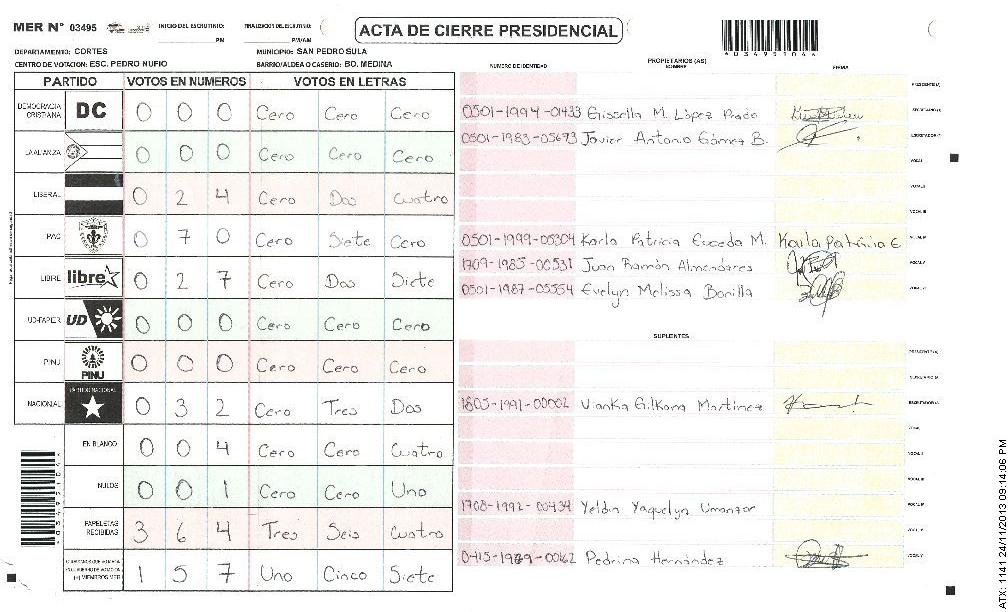 MER N° 03495 INICIO DEL ESCRUTINIO: PM FINALIZACION DEL ESCRUTINIO: PM/AM
ACTA DE CIERRE PRESIDENCIAL
DEPARTAMENTO: CORTES MUNICIPIO: SAN PEDRO SULA
CENTRO DE VOTACION: ESC. PEDRO NUFIO BARRIO/ALDEA O CASERIO: BO. MEDINA
PARTIDO VOTOS EN NUMEROS VOTOS EN LETRAS
DEMOCRACIA CRISTIANA DC 0 0 0 Cero Cero Cero
LA ALIANZA 0 0 0 Cero Cero Cero
LIBERAL 0 2 4 Cero Dos Cuatro
PAC 0 7 0 Cero Siete Cero
LIBRE libre 0 2 7 Cero Dos Siete
UD-FAPER UD 0 0 0 Cero Cero Cero
PINU PINU 0 0 0 Cero Cero Cero
NACIONAL PARTIDO NACIONAL 0 3 2 Cero Tres Dos
EN BLANCO 0 0 4 Cero Cero Cuatro
NULOS 0 0 1 Cero Cero Uno
PAPELETAS RECIBIDAS 3 6 4 Tres Seis Cuatro
1 5 7 Uno Cinco Siete
NUMERO DE IDENTIDAD PROPIETARIOS (AS) NOMBRE FIRMA
PRESIDENTE (A)
0501-1994-01433 Gissella M. López Prado SECRETARIO (A)
0501-1983-05673 Javier Antonio Gómez B. ESCRUTADOR (A)
VOCAL I
VOCAL II
VOCAL III
0501-1999-05304 Karla Patricia Euceda M. Karla Patricia E VOCAL IV
1709-1985-00531 Juan Ramón Almendares VOCAL V
0501-1987-05554 Evelyn Melissa Bonilla
SUPLENTES
PRESIDENTE (A)
SECRETARIO (A)
1803-1991-00002 Vianka Gilkana Martinez ESCRUTADOR (A)
VOCAL I
VOCAL II
VOCAL III
1708-1992-00434 Yeldin Yaquelyn Umanzor VOCAL IV
0415-1979-0062 Pedrina Hernández
ATX: 1141 24/11/2013 09:14:06 PM